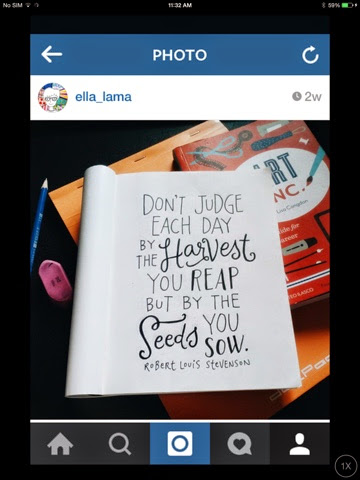 No SIM
11:32 AM
59%
PHOTO
ella_lama
2w
DON'T JUDGE
EACH DAY
BY THE Harvest
YOU REAP
BUT BY THE
Seeds YOU
SOW.
ROBERT LOUIS STEVENSON
ART
INC.
Lisa Congdon
1X